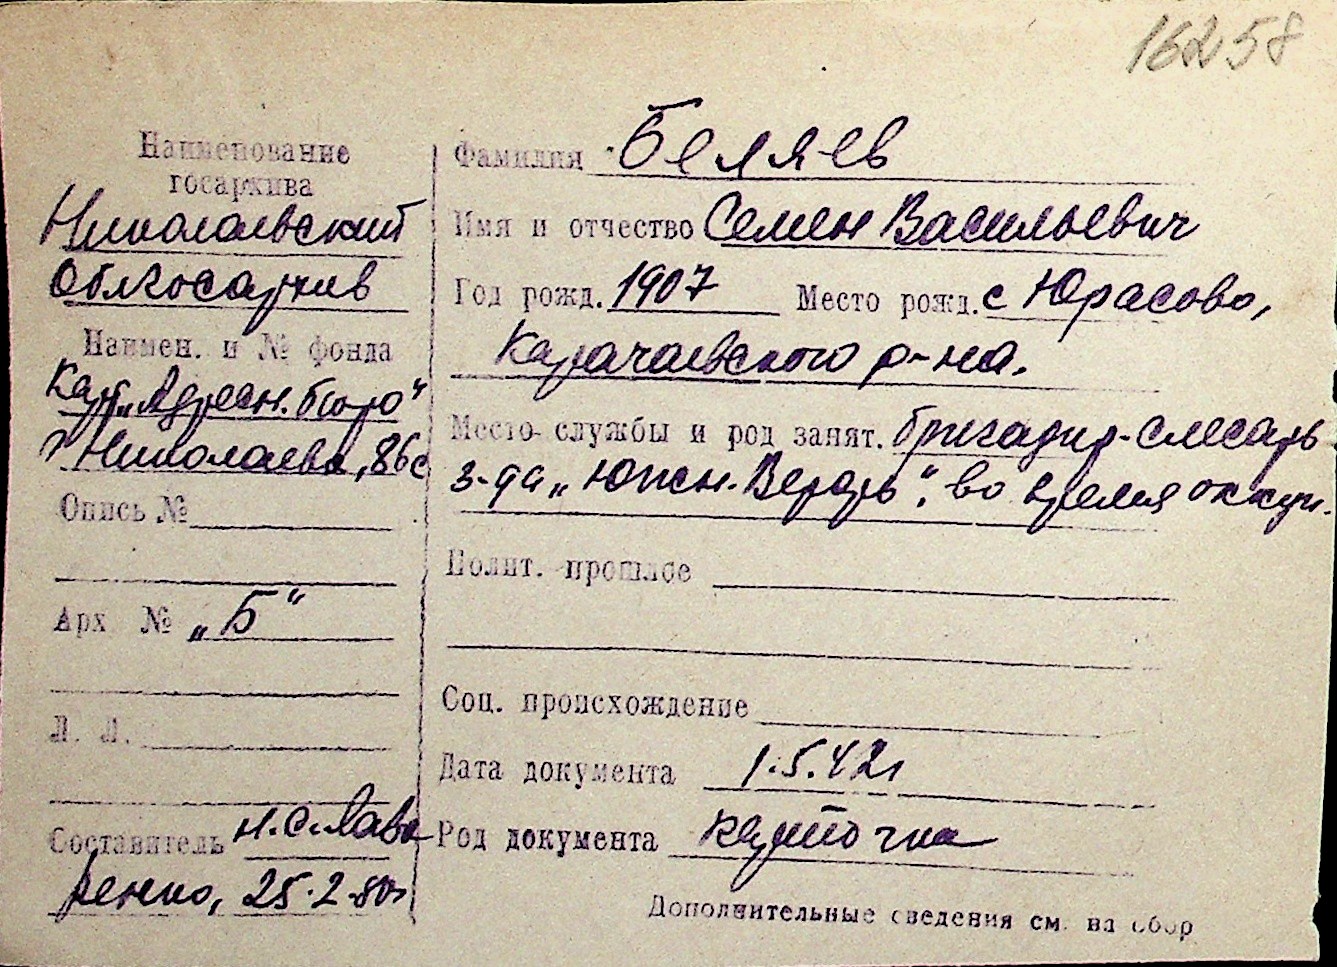 16258
Наименование
госархива
Николаевский
Облгосархив
Наимен. и № фонда
Карт. „Адресн. бюро“
г. Николаева, 86с
Опись №
Арх № „Б“
Л. Л.
Составитель Н.С. Лавре
ренко, 25.2.50г
Фамилия Беляев
Имя и отчество Семен Васильевич
Год рожд. 1907 Место рожд. с Юрасово,
Карачаевского р-на.
Место службы и род занят. бригадир-слесарь
з-да „Южн. Верфь“. во время оккуп.
Полит. прошлое
Соц. происхождение
Дата документа 1.5.42г
Род документа карточка
Дополнительные сведения см. на обор